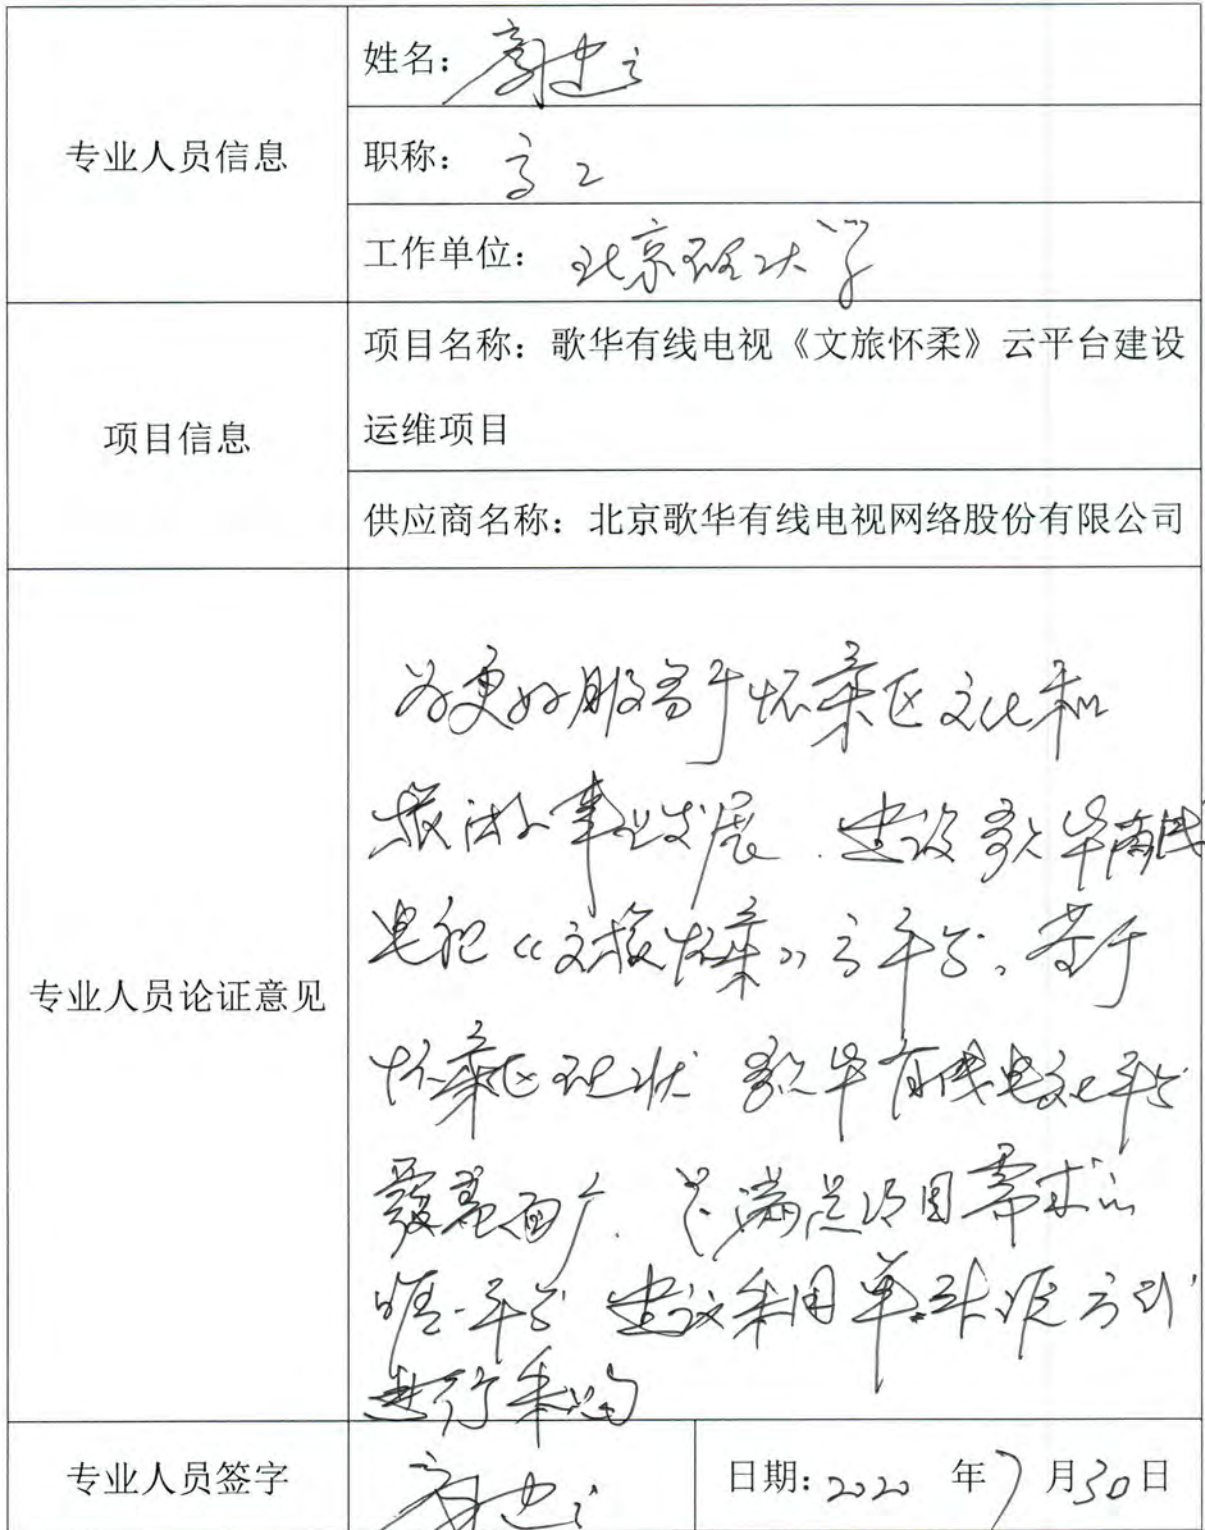 专业人员信息
姓名:
职称: 高工
工作单位: 北京理工大学
项目信息
项目名称: 歌华有线电视《文旅怀柔》云平台建设
运维项目
供应商名称: 北京歌华有线电视网络股份有限公司
专业人员论证意见
为更好服务于怀柔区文化和
旅游事业发展.建设歌华有线
电视《文旅怀柔》云平台。基于
怀柔区现状 歌华有线电文化平台
覆盖面广.是满足项目需求的
唯一平台 建议采用单一来源方式
进行采购
专业人员签字
日期: 2020 年 7 月 30 日